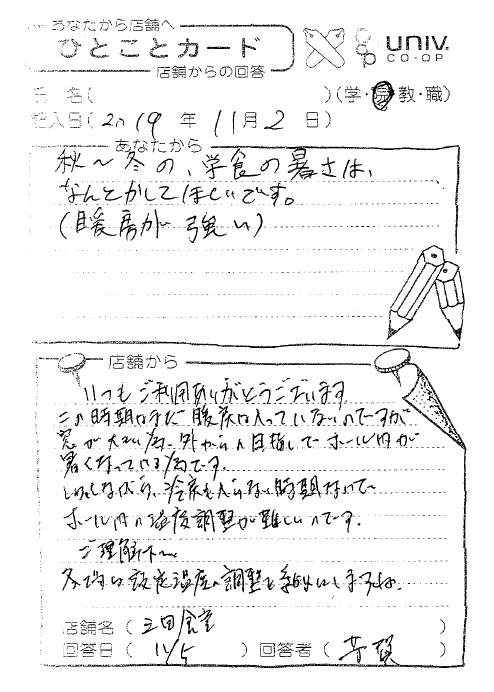 あなたから店舗へ
ひとことカード
UNIV.
CO-OP
店舗からの回答
氏 名( )(学・院・教・職)
記入日(2019年11月2日)
あなたから
秋~冬の、学食の暑さは、
なんとかしてほしいです。
(暖房が強い)
店舗から
いつもご利用ありがとうございます
この時期はまだ暖房は入っていないのですが
窓が大きい為、外からの日差しでホール内が
暑くなっている為です。
しかしながら、冷房も入らない時期なので
ホール内の温度調整が難しいのです。
ご理解下さい。
冬では設定温度の調整を
店舗名( 三田食堂 )
回答日( 11/5 ) 回答者( 芳賀 )